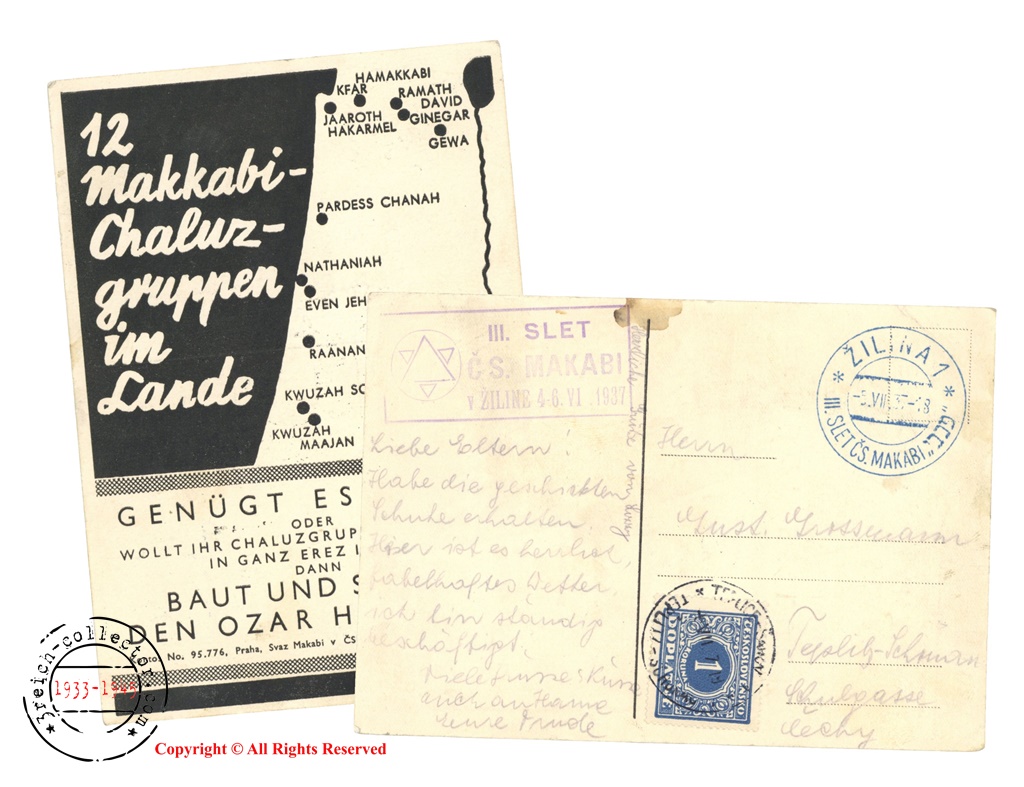 12
Makkabi-
Chaluz-
gruppen
im
Lande
HAMAKKABI
KFAR
RAMATH
DAVID
JAAROTH
HAKARMEL
GINEGAR
GEWA
PARDESS CHANAH
NATHANIAH
EVEN JEH
RAANAN
KWUZAH SC
KWUZAH
MAAJAN
GENÜGT ES
ODER
WOLLT IHR CHALUZGRUP
IN GANZ EREZ I
DANN
BAUT UND S
DEN OZAR H
No. 95.776, Praha, Svaz Makabi v ČS
III. SLET
ČS. MAKABI
v ŽILINE 4-6. VI. 1937
Liebe Eltern!
Habe die geschickten
Schuhe erhalten.
Hier ist es herrlich,
fabelhaftes Wetter.
ich bin ständig
beschäftigt.
Viele Küsse
auch an Hanna
Eure Trude
Herrn
Gust. Grossmann
Teplitz-Schönau
Schulgasse
Čechy
* ŽILINA 1 *
III. SLET ČS. MAKABI
ČESKOSLOVENSKO
1
KORUNA
DOPLATIT
3reich-collector.com
1933-1945
Copyright © All Rights Reserved